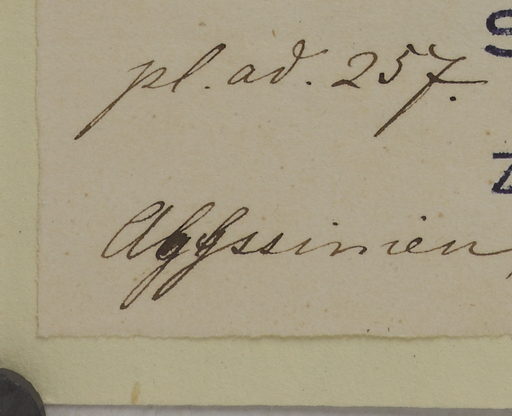 pl. ad. 257.
S
Abyssinien,
Z